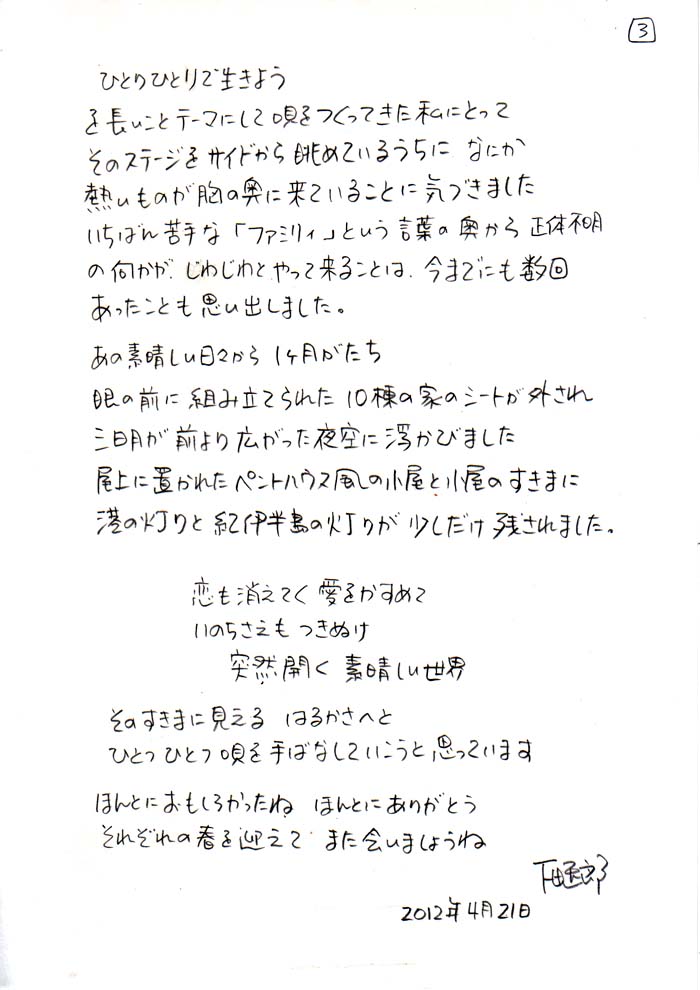 3
ひとりひとりで生きよう
を長いことテーマにして唄をつくってきた私にとって
そのステージをサイドから眺めているうちに なにか
熱いものが胸の奥に来ていることに気づきました
いちばん苦手な「ファミリィ」という言葉の奥から正体不明
の何かが、じわじわとやって来ることは、今までにも数回
あったことも思い出しました。
あの素晴しい日々から 1ヶ月がたち
眼の前に組み立てられた 10棟の家のシートが外され
三日月が前より広がった夜空に浮かびました
尾上に置かれたペントハウス風の小屋と小屋のすきまに
港の灯りと紀伊半島の灯りが少しだけ残されました。
恋も消えてく 愛をかすめて
いのちさえも つきぬけ
突然開く 素晴しい世界
そのすきまに見える はるかさへと
ひとつひとつ唄を手ばなしていこうと思っています
ほんとにおもしろかったね ほんとにありがとう
それぞれの春を迎えて また会いましょうね
下田逸郎
2012年4月21日